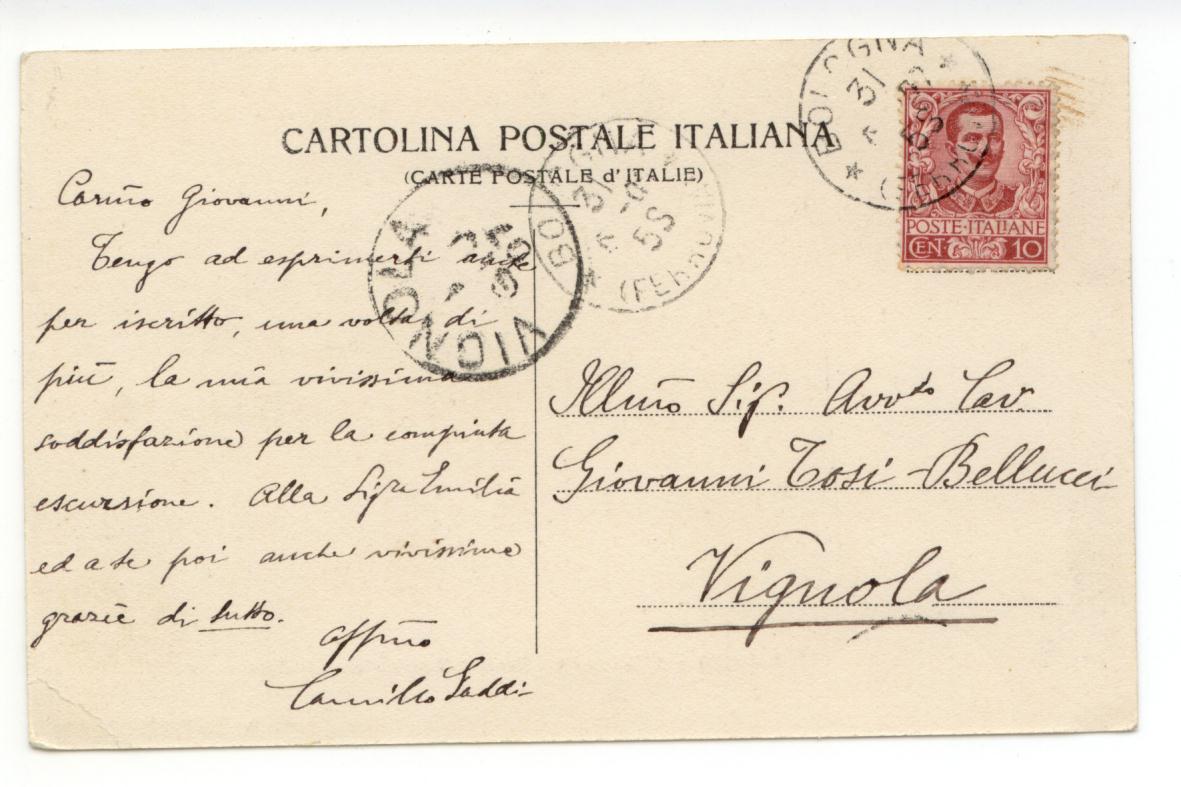 CARTOLINA POSTALE ITALIANA
(CARTE POSTALE d'ITALIE)
BOLOGNA
31
BOLOGNA
31
5S
(FERROVIA)
VIGNOLA
POSTE·ITALIANE
CEN· 10
Carmo Giovanni,
Tengo ad esprimerti anche
per iscritto, una volta di
più, la mia vivissima
soddisfazione per la compiuta
escursione. Alla Sigra Emilia
ed a te poi anche vivissime
grazie di tutto.
affmo
Camillo
Illmo Sig. Avvto Cav.
Giovanni Tosi-Bellucci
Vignola